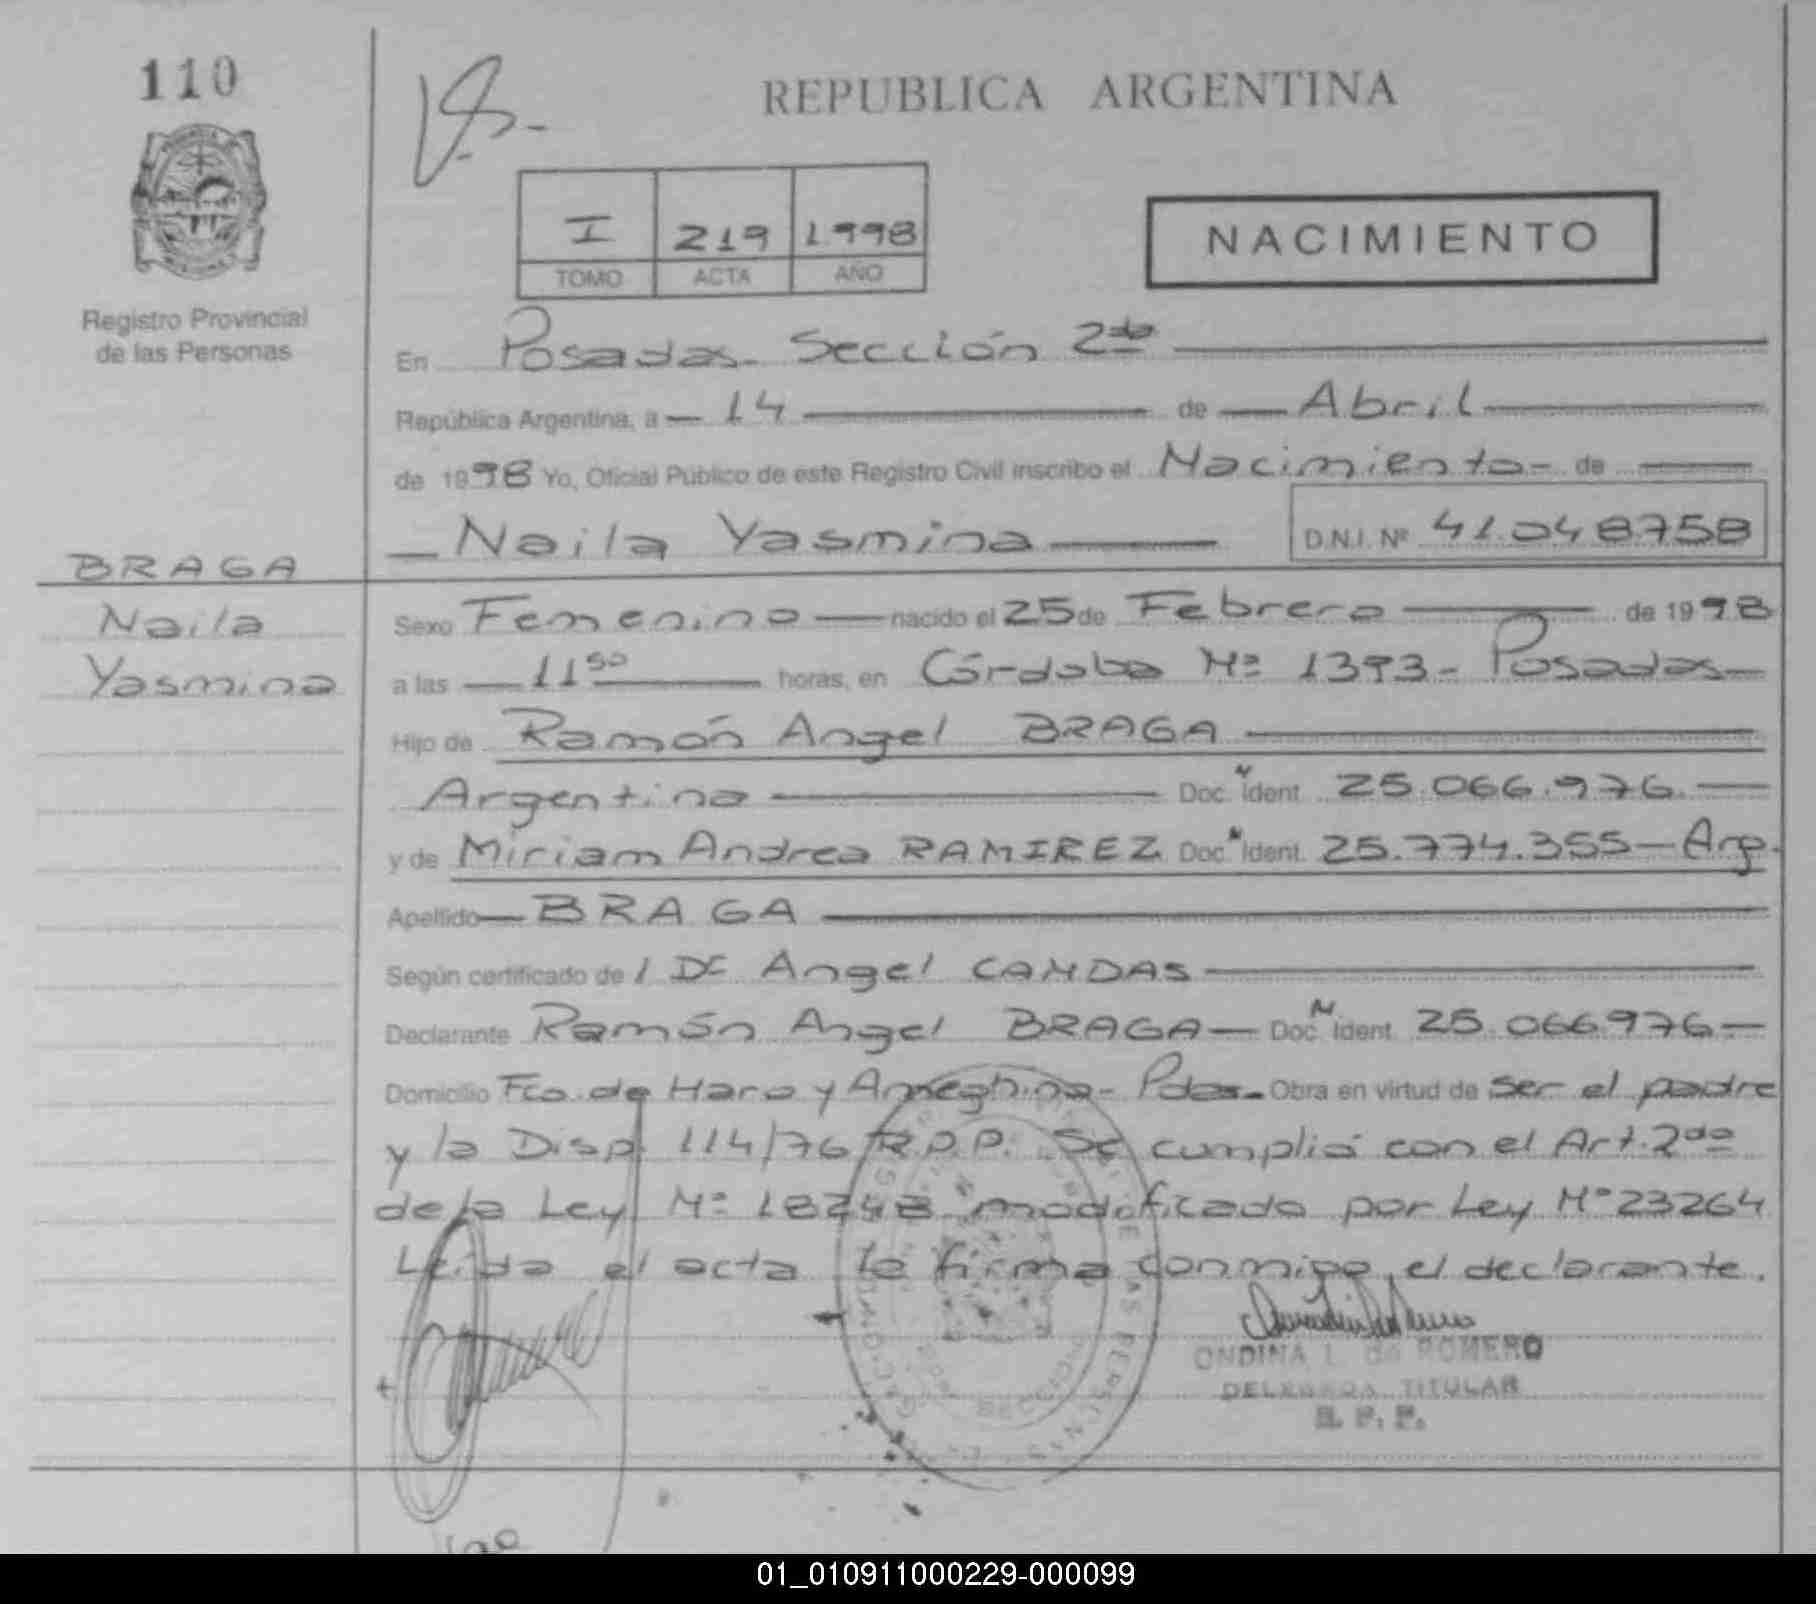 110
REPUBLICA ARGENTINA
I 219 1998
TOMO ACTA AÑO
NACIMIENTO
Registro Provincial
de las Personas
En Posadas - Sección 2da
República Argentina, a - 14 de Abril
de 1998 Yo, Oficial Público de este Registro Civil inscribo el Nacimiento - de
Naila Yasmina D.N.I. Nº 41.048758
BRAGA
Naila
Yasmina
Sexo Femenino nacido el 25 de Febrero de 1998
a las 11 50 horas, en Córdoba Nº 1393 - Posadas -
Hijo de Ramón Angel BRAGA
Argentino Doc. Ident. 25.066.976.
y de Miriam Andrea RAMIREZ Doc. Ident. 25.774.355 - Arg.
Apellido - BRAGA
Según certificado de / Dr Angel CANDAS
Declarante Ramón Angel BRAGA - Doc. Ident. 25.066976 -
Domicilio Fco. de Haro y Ameghino - Pdas. Obra en virtud de ser el padre
y la Disp. 114/76 R.P.P. Se cumplió con el Art. 2do
de la Ley Nº 18248 modificado por Ley Nº 23264
Leída el acta la firma conmigo, el declarante.
ONDINA L. de ROMERO
DELEGADA TITULAR
R. P. P.
01_010911000229-000099